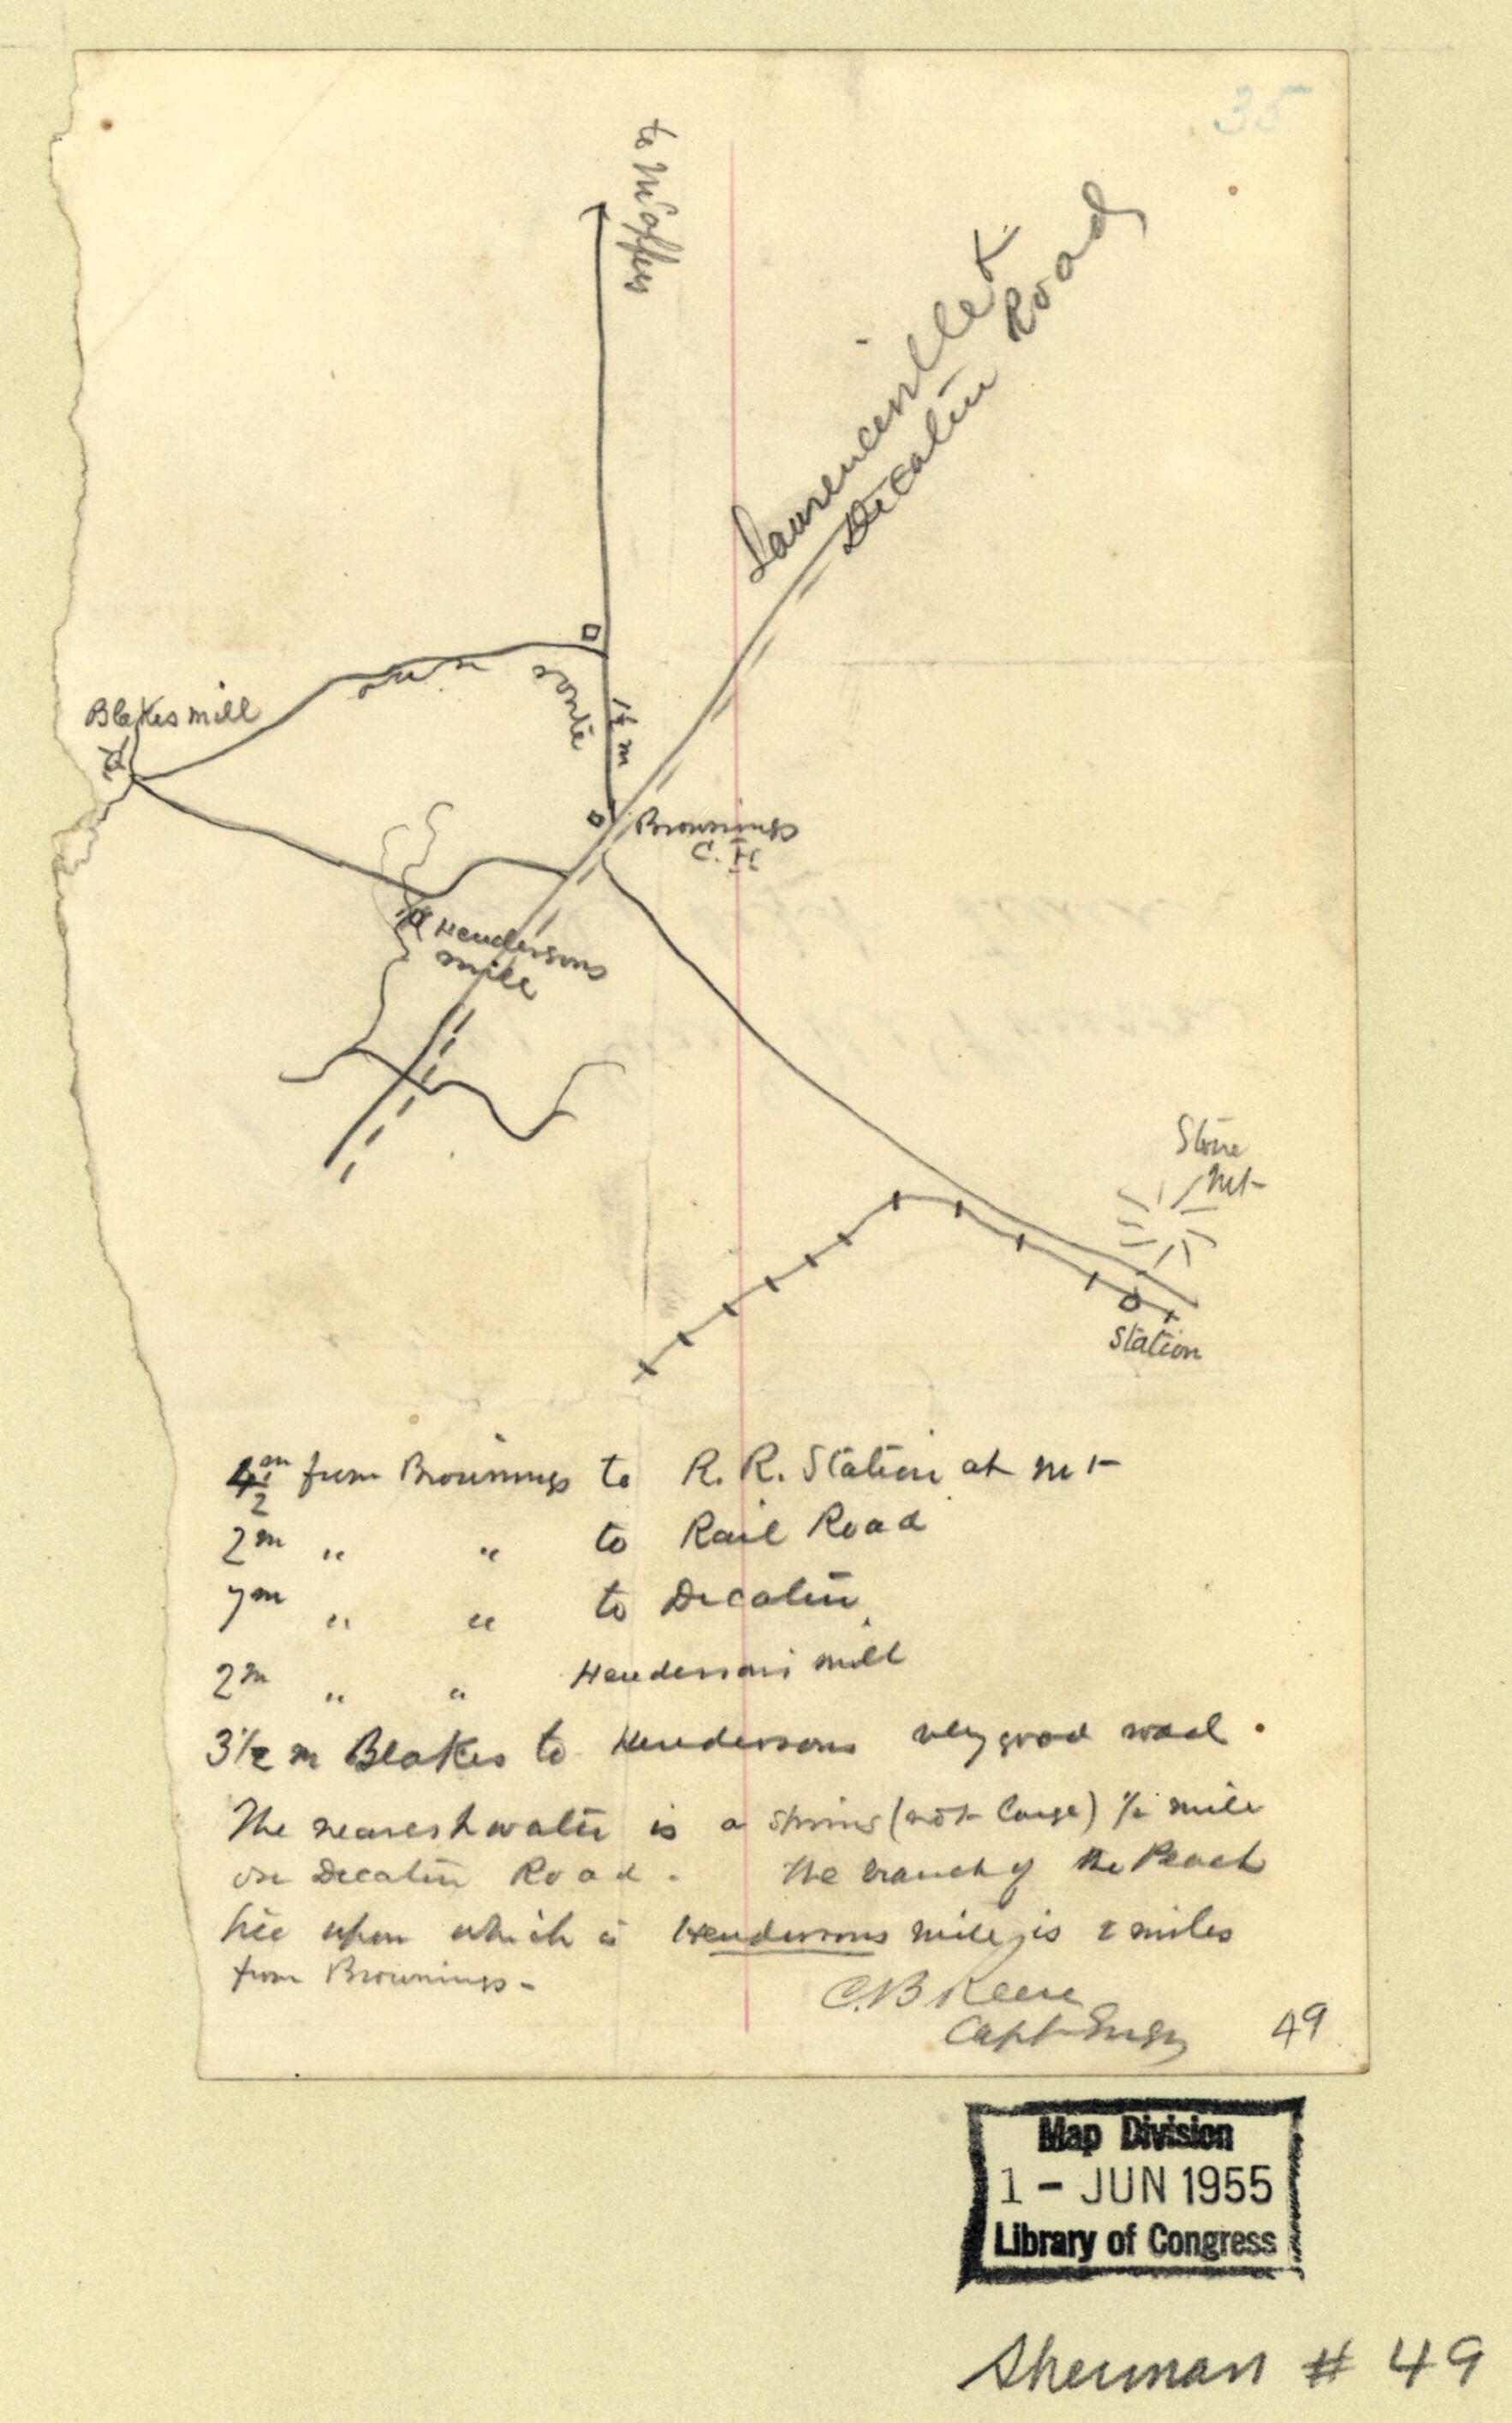 35
to McAffees
Lawrenceville &
Decatur Road
Blakes mill
our route
1¼ m
Brownings
C.H.
Hendersons
mill
Stone
Mt
Station
4½ m from Brownings to R. R. Station at Mt
2m " " to Rail Road
7m " " to Decatur
2m " " Hendersons mill
3½ m Blakes to Hendersons very good road.
The nearest water is a spring (not large) ½ mile
on Decatur Road. The branch of the Peach
tree upon which is Hendersons mill, is 2 miles
from Brownings -
C.B Reese
Capt Engr
49
Map Division
1 - JUN 1955
Library of Congress
Sherman # 49